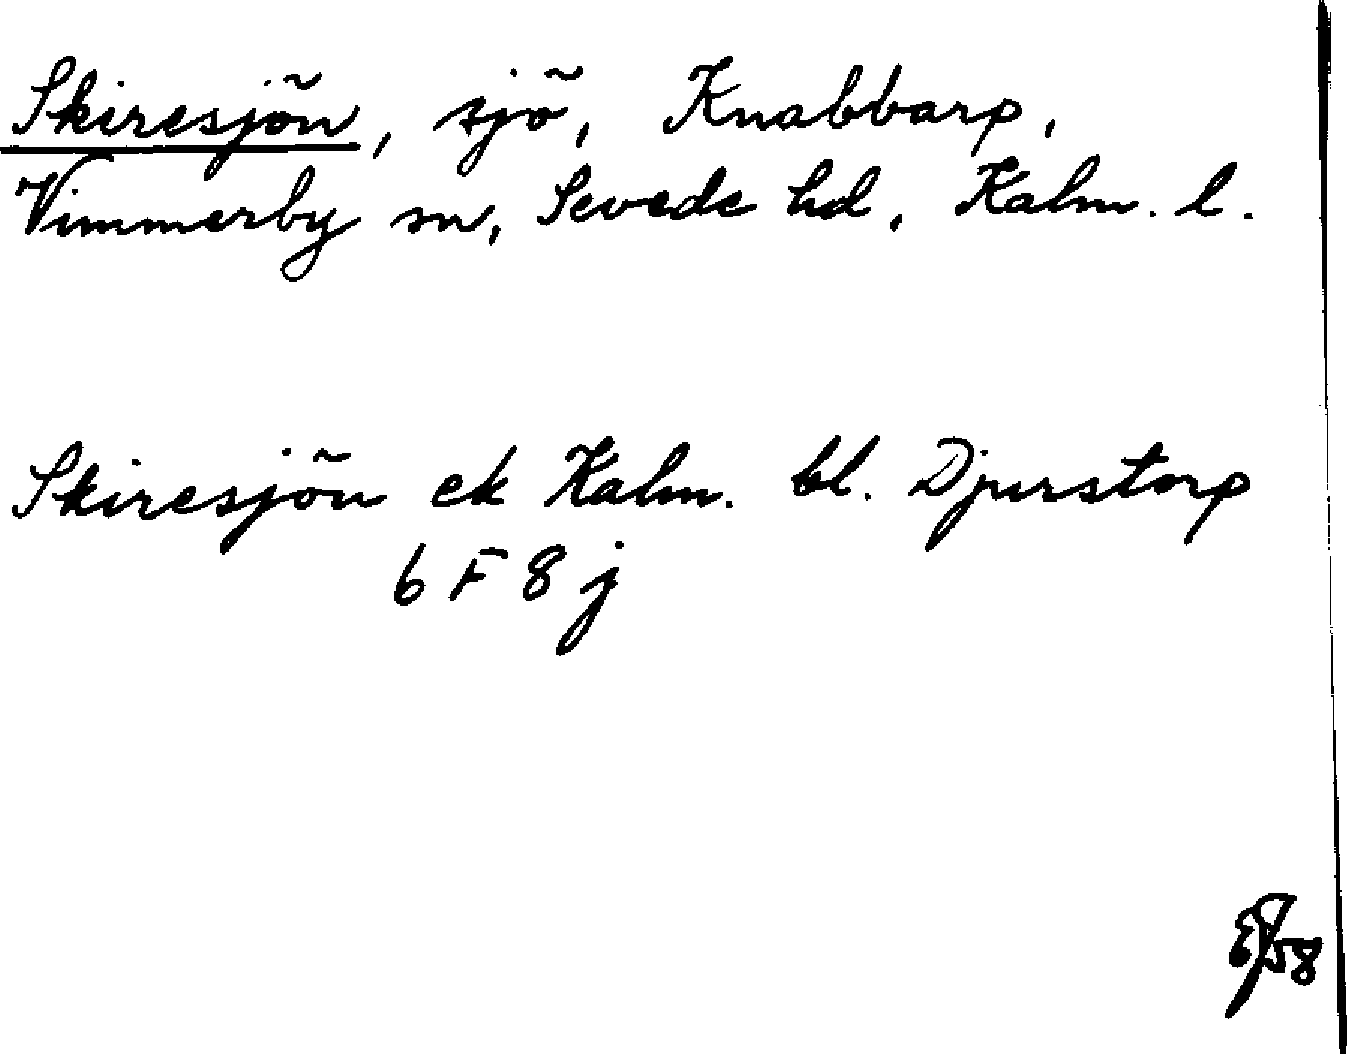 Skiresjön, sjö, Knabbarp,
Vimmerby sn, Sevede hd, Kalm. l.
Skiresjön ek Kalm. bl. Djurstorp
6 F 8 j